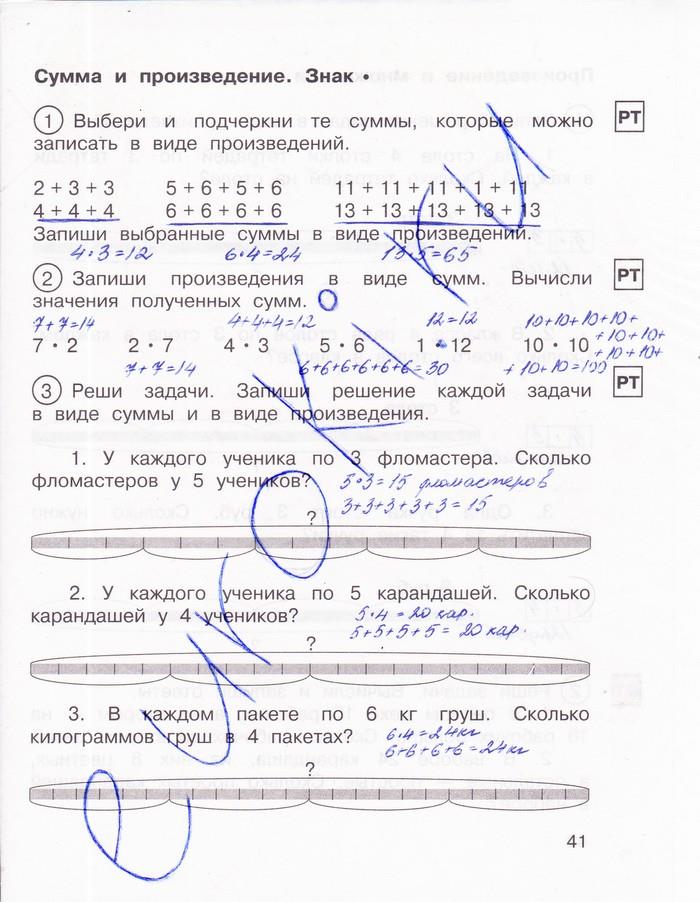 Сумма и произведение. Знак •
1 Выбери и подчеркни те суммы, которые можно РТ
записать в виде произведений.
2 + 3 + 3 5 + 6 + 5 + 6 11 + 11 + 11 + 1 + 11
4 + 4 + 4 6 + 6 + 6 + 6 13 + 13 + 13 + 13 + 13
Запиши выбранные суммы в виде произведений.
4·3=12 6·4=24 13·5=65
2 Запиши произведения в виде сумм. Вычисли РТ
значения полученных сумм.
7+7=14 4+4+4=12 12=12 10+10+10+10+
7 · 2 2 · 7 4 · 3 5 · 6 1 · 12 10 · 10 +10+10+
+10+10+
7+7=14 6+6+6+6+6=30 +10+10=100
3 Реши задачи. Запиши решение каждой задачи РТ
в виде суммы и в виде произведения.
1. У каждого ученика по 3 фломастера. Сколько
фломастеров у 5 учеников? 5·3=15 фломастеров
3+3+3+3+3=15
?
2. У каждого ученика по 5 карандашей. Сколько
карандашей у 4 учеников? 5·4=20 кар.
5+5+5+5=20 кар.
?
3. В каждом пакете по 6 кг груш. Сколько
килограммов груш в 4 пакетах? 6·4=24кг
6+6+6+6=24кг
41